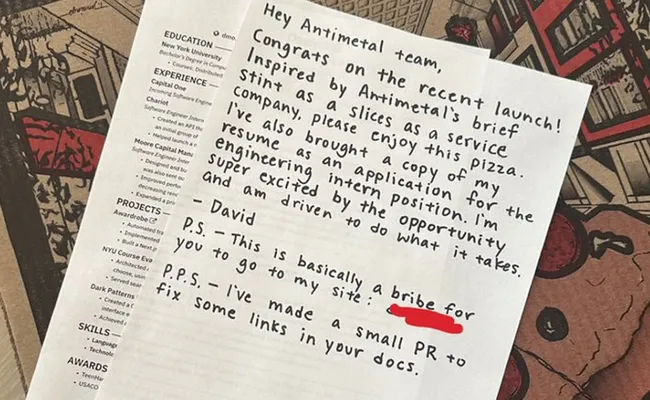 Hey Antimetal team,
Congrats on the recent launch!
Inspired by Antimetal's brief
stint as a slices as a service
company, please enjoy this pizza.
I've also brought a copy of my
resume as an application for the
engineering intern position. I'm
super excited by the opportunity
and am driven to do what it takes.
- David
P.S. - This is basically a bribe for
you to go to my site:
P.P.S. - I've made a small PR to
fix some links in your docs.
EDUCATION
New York University
Bachelor's Degree in
Courses: Distributed
EXPERIENCE
Capital One
Incoming Software Engine
Chariot
Software Engineer Inter
Created an API
an initial group of
Helped launch a
Moore Capital Mana
Software Engineer Inter
Designed and bu
was also sent
Improved perfo
decreasing
Expanded a
PROJECTS
Awardrobe
Automated
Implemented
Built a Next.j
NYU Course Eva
Architected
choose,
Served
Dark Patterns
Created a C
interface
Achieved
SKILLS
Languag
Technolo
AWARDS
TeenHa
USACO